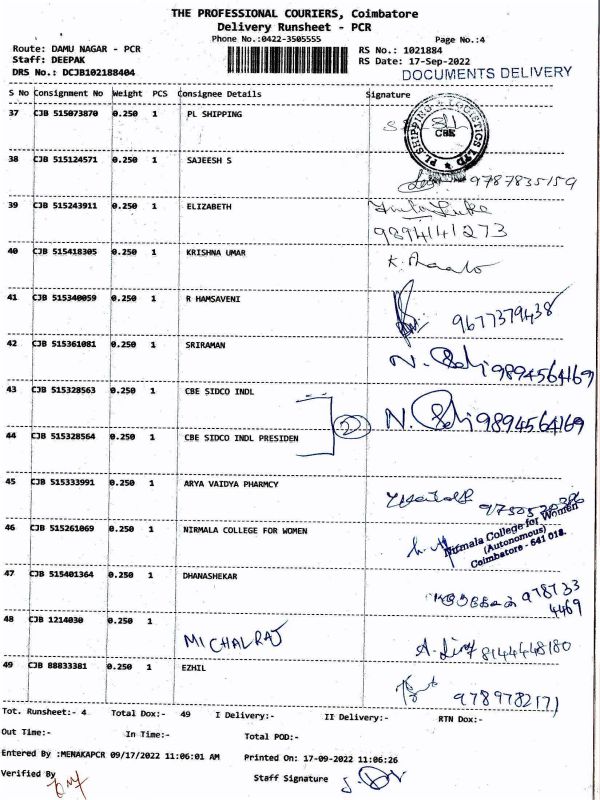 THE PROFESSIONAL COURIERS, Coimbatore
Delivery Runsheet - PCR
Phone No.:0422-3505555 Page No.:4
Route: DAMU NAGAR - PCR RS No.: 1021884
Staff: DEEPAK RS Date: 17-Sep-2022
DRS No.: DCJB102188404 DOCUMENTS DELIVERY
S No Consignment No Weight PCS Consignee Details Signature
37 CJB 515073870 0.250 1 PL SHIPPING
PL SHIPPING & LOGISTICS LTD CBE
38 CJB 515124571 0.250 1 SAJEESH S
9787835159
39 CJB 515243911 0.250 1 ELIZABETH
Luke
9894141273
40 CJB 515418305 0.250 1 KRISHNA UMAR
K.
41 CJB 515340059 0.250 1 R HAMSAVENI
9677379438
42 CJB 515361081 0.250 1 SRIRAMAN
N. 9894564169
43 CJB 515328563 0.250 1 CBE SIDCO INDL
2 N. 9894564169
44 CJB 515328564 0.250 1 CBE SIDCO INDL PRESIDEN
45 CJB 515333991 0.250 1 ARYA VAIDYA PHARMCY
46 CJB 515261069 0.250 1 NIRMALA COLLEGE FOR WOMEN
Nirmala College for Women
(Autonomous)
Coimbatore - 641 018.
47 CJB 515401364 0.250 1 DHANASHEKAR
978733
4469
48 CJB 1214030 0.250 1
MICHALRAJ
A. 8144448180
49 CJB 88833381 0.250 1 EZHIL
9789782171
Tot. Runsheet:- 4 Total Dox:- 49 I Delivery:- II Delivery:- RTN Dox:-
Out Time:- In Time:- Total POD:-
Entered By :MENAKAPCR 09/17/2022 11:06:01 AM Printed On: 17-09-2022 11:06:26
Verified By Staff Signature